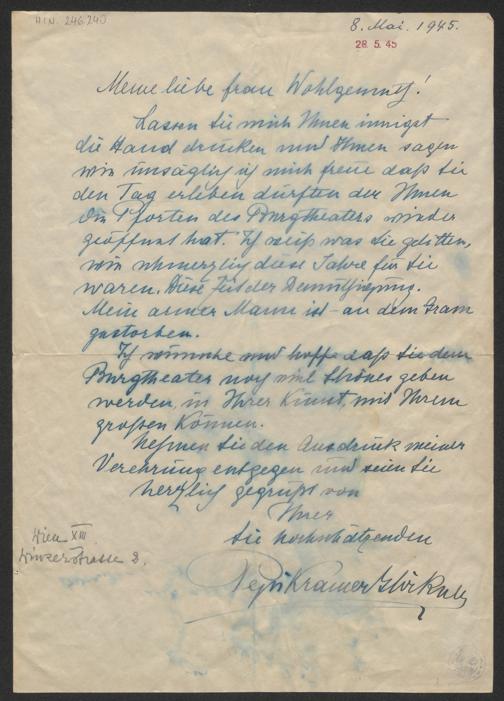 HIN. 246.240
8. Mai. 1945.
28. 5. 45
Meine liebe Frau Wohlgemuth!
Lassen Sie mich Ihnen innigst
die Hand drücken und Ihnen sagen
wie unsäglich ich mich freue daß Sie
den Tag erleben durften der Ihnen
die Pforten des Burgtheaters wieder
geöffnet hat. Ich weiß was Sie gelitten,
wie schmerzlich diese Jahre für Sie
waren. Diese Zeit der Demüthigung.
Mein armer Mann ist – an dem Gram
gestorben.
Ich wünsche und hoffe daß Sie dem
Burgtheater noch viel Schönes geben
werden, in Ihrer Kunst, mit Ihrem
großen Können.
Nehmen Sie den Ausdruck meiner
Verehrung entgegen und seien Sie
herzlich gegrüßt von
Ihrer
Sie hochschätzenden
Pepi Kramer Glöckner
Wien XIII
Winzerstrasse 2.